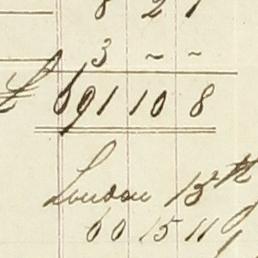 8 2 1
3 ~ ~
£ 691 10 8
London 13th
60 15 11